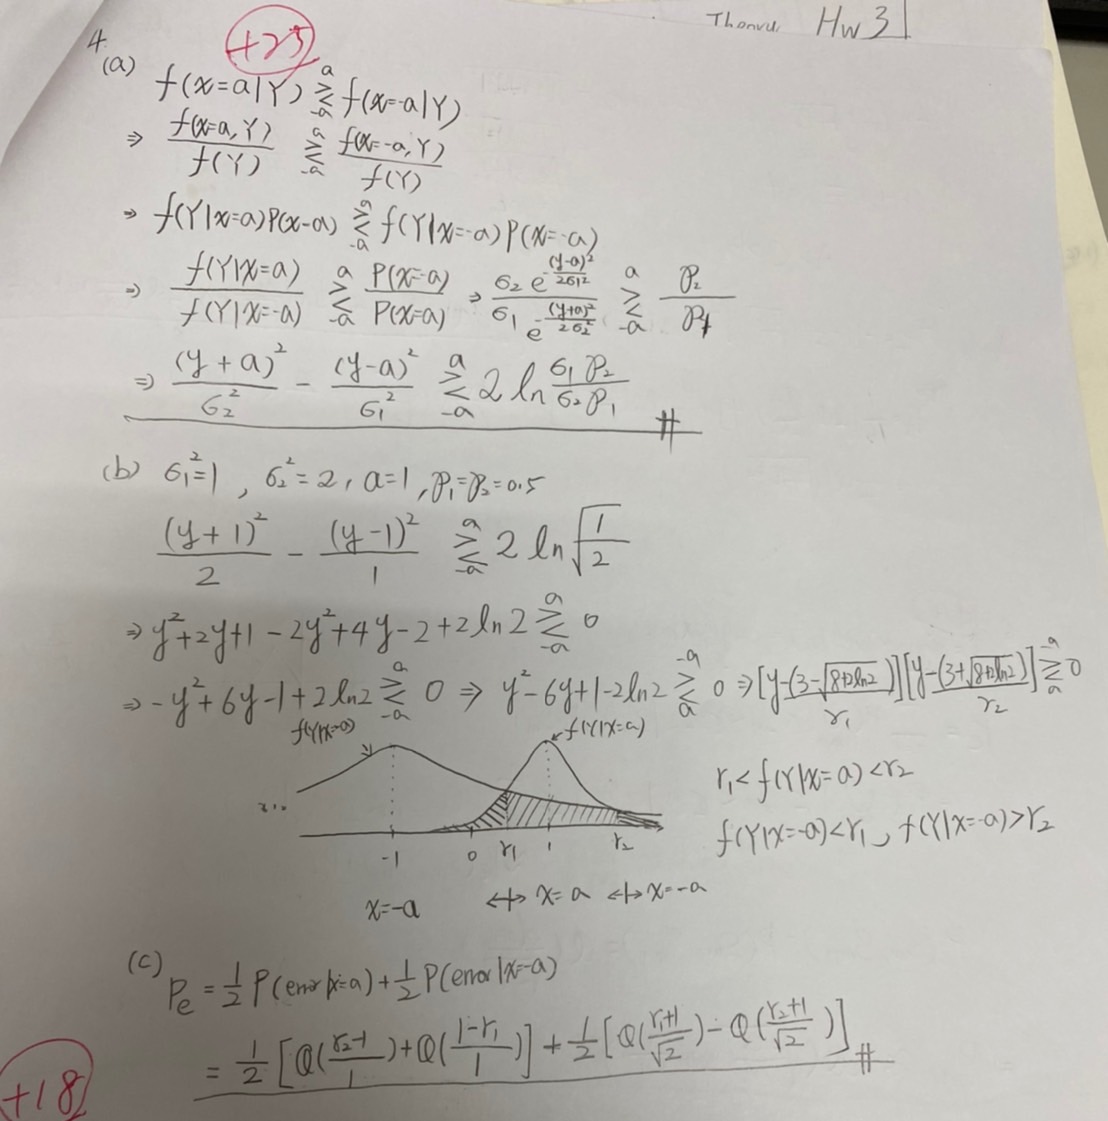 Hw 3
4.
+25
(a) f(x=a|Y) ≷ᵃ₋ₐ f(x=-a|Y)
⇒ f(x=a,Y)/f(Y) ≷ᵃ₋ₐ f(x=-a,Y)/f(Y)
⇒ f(Y|x=a)P(x=a) ≷ᵃ₋ₐ f(Y|x=-a)P(x=-a)
⇒ f(Y|x=a)/f(Y|x=-a) ≷ᵃ₋ₐ P(x=-a)/P(x=a) ⇒ (σ₂ e^(-(y-a)²/2σ₁²))/(σ₁ e^(-(y+a)²/2σ₂²)) ≷ᵃ₋ₐ P₂/P₁
⇒ (y+a)²/σ₂² - (y-a)²/σ₁² ≷ᵃ₋ₐ 2 ln (σ₁P₂/σ₂P₁) #
(b) σ₁²=1, σ₂²=2, a=1, P₁=P₂=0.5
(y+1)²/2 - (y-1)²/1 ≷ᵃ₋ₐ 2 ln √(1/2)
⇒ y²+2y+1-2y²+4y-2+2ln2 ≷ᵃ₋ₐ 0
⇒ -y²+6y-1+2ln2 ≷ᵃ₋ₐ 0 ⇒ y²-6y+1-2ln2 ≷⁻ᵃₐ 0 ⇒ [y-(3-√(8+2ln2))][y-(3+√(8+2ln2))] ≷⁻ᵃₐ 0
r₁ r₂
f(Y|x=-a) f(Y|x=a)
r₁<f(Y|x=a)<r₂
f(Y|x=-a)<r₁, f(Y|x=-a)>r₂
-1 0 r₁ 1 r₂
x=-a ↔ x=a ↔ x=-a
(c) Pe = 1/2 P(error|x=a)+1/2 P(error|x=-a)
= 1/2 [Q((r₂-1)/1)+Q((1-r₁)/1)] + 1/2 [Q((r₁+1)/√2)-Q((r₂+1)/√2)] #
+18